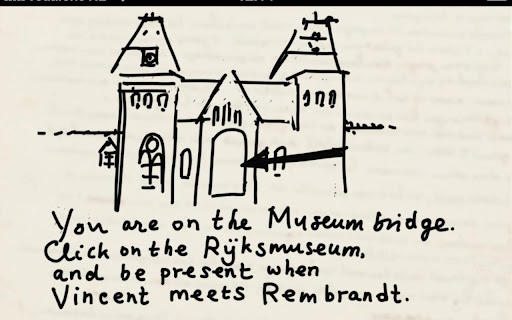 You are on the Museum bridge.
Click on the Rijksmuseum,
and be present when
Vincent meets Rembrandt.